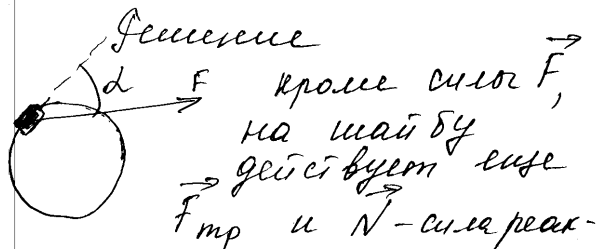 Решение
α F кроме силы F,
на шайбу
действует еще
Fтр и N - сила реак-